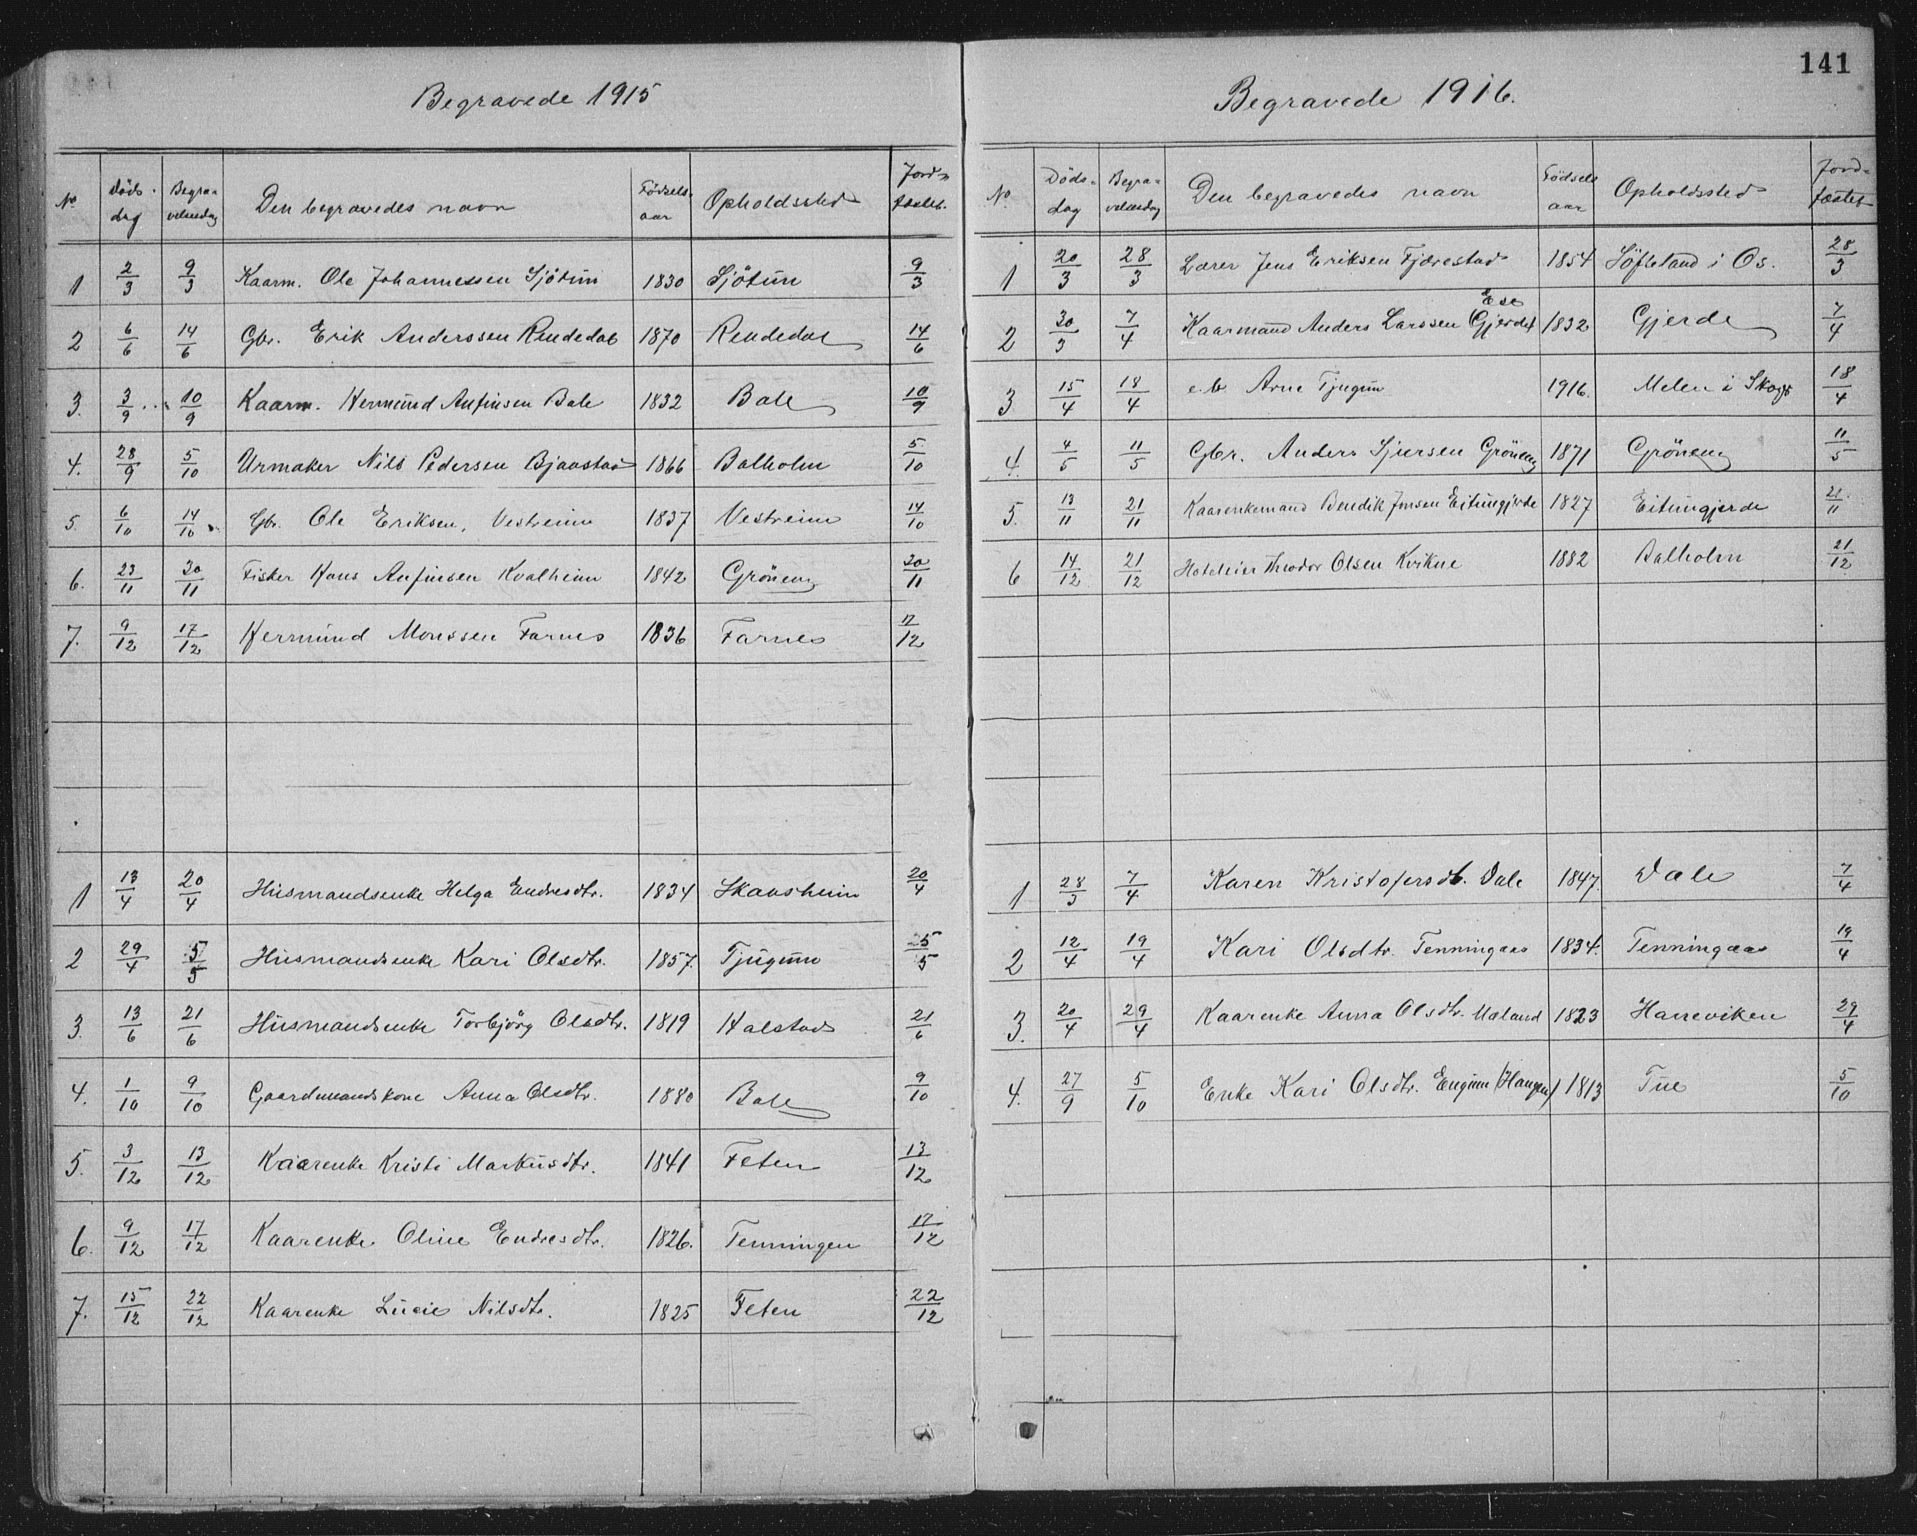 Begravede 1915
No Døds-dag Begravelsesdag Den begravedes navn Fødselsaar Opholdssted Jordfæstet
1 2/3 9/3 Kaarm. Ole Johannessen Sjötun 1830 Sjötun 9/3
2 6/6 14/6 Gbr. Erik Anderssen Rendedal 1870 Rendedal 14/6
3. 3/9 10/9 Kaarm. Hermund Anfinsen Bale 1832 Bale 10/9
4. 28/9 5/10 Urmaker Nils Pedersen Bjaastad 1866 Balholm 5/10
5. 6/10 14/10 Gbr. Ole Eriksen, Vestreim 1837 Vestreim 14/10
6. 23/11 30/11 Fisker Hans Anfinsen Kvalheim 1842 Gröneng 30/11
7. 9/12 17/12 Hermund Monssen Farnes 1836 Farnes 17/12
1 13/4 20/4 Husmandsenke Helga Endresdtr. 1834 Skaasheim 20/4
2 29/4 5/5 Husmandsenke Kari Olsdtr. 1857 Tjugum 5/5
3. 13/6 21/6 Husmandsenke Torbjörg Olsdtr. 1819 Halstad 21/6
4. 1/10 9/10 Gaardmandskone Anna Olsdtr. 1880 Bale 9/10
5. 3/12 13/12 Kaarenke Kristi Markusdtr. 1841 Feten 13/12
6. 9/12 17/12 Kaarenke Oline Endresdtr. 1826. Tenningen 17/12
7. 15/12 22/12 Kaarenke Lucie Nilsdtr. 1825 Feten 22/12
141
Begravede 1916.
No. Døds-dag Begravelsesdag Den begravedes navn Fødselsaar Opholdssted Jordfæstet
1 20/3 28/3 Lærer Jens Eriksen Fjærestad 1854 Söfteland i Os. 28/3
Ese
2 30/3 7/4 Kaarmand Anders Larssen Gjerde 1832 Gjerde 7/4
3 15/4 18/4 e.b Arne Tjugum 1916. Melen i 18/4
4. 4/5 11/5 Gbr. Anders Sjursen Gröneng 1871 Gröneng 11/5
5. 13/11 21/11 Kaarenkemand Bendik Jensen Eitungjerde 1827 Eitungjerde 21/11
6 14/12 21/12 Hoteleier Theodor Olsen Kvikne 1882 Balholm 21/12
1 28/3 7/4 Karen Kristofersdt. Dale 1847. Dale 7/4
2 12/4 19/4 Kari Olsdtr. Tenningaas 1834. Tenningaas 19/4
3. 20/4 29/4 Kaarenke Anna Olsdtr. Maland 1823 Hanevikén 29/4
4. 27/9 5/10 Enke Kari Olsdtr. Engum (Haugen) 1813 Tue 5/10